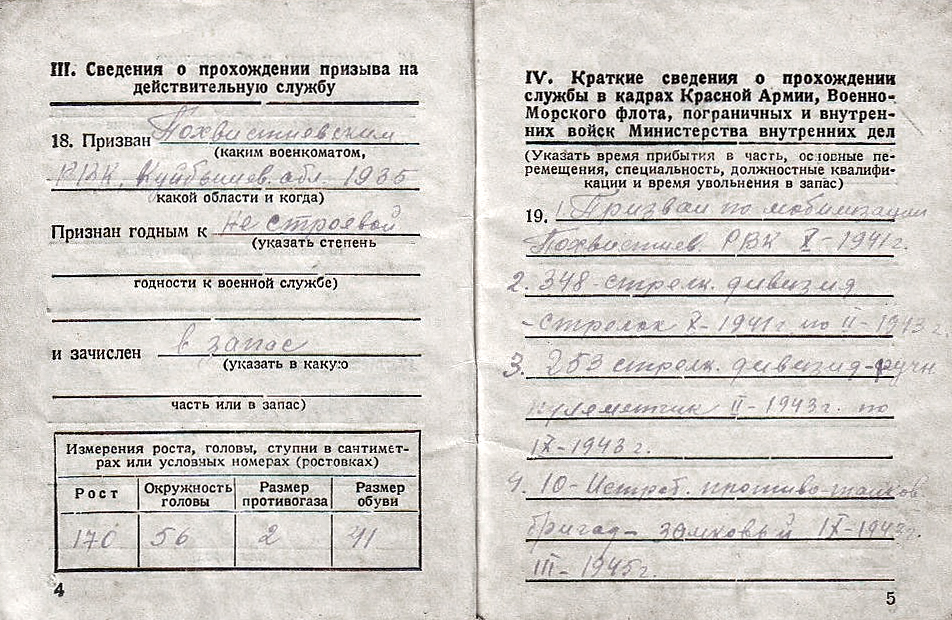 III. Сведения о прохождении призыва на
действительную службу
18. Призван Похвистневским
(каким военкоматом,
РВК, Куйбышев. обл. 1935
какой области и когда)
Признан годным к не строевой
(указать степень
годности к военной службе)
и зачислен в запас
(указать в какую
часть или в запас)
Измерения роста, головы, ступни в сантимет-
рах или условных номерах (ростовках)
Рост Окружность головы Размер противогаза Размер обуви
170 56 2 41
4
IV. Краткие сведения о прохождении
службы в кадрах Красной Армии, Военно-
Морского флота, пограничных и внутрен-
них войск Министерства внутренних дел
(Указать время прибытия в часть, основные пе-
ремещения, специальность, должностные квалифи-
кации и время увольнения в запас)
19. 1. Призван по мобилизации
Похвистнев. РВК X-1941 г.
2. 348 - стрелк. дивизия
- стрелок X-1941 г по II-1943 г
3. 253 стрелк. дивизия - ручн
пулеметчик II-1943 г. по
IX-1943 г.
4. 10 - Истреб. противо-танков
бригад - замковый IX-1943 г.
III - 1945 г.
5